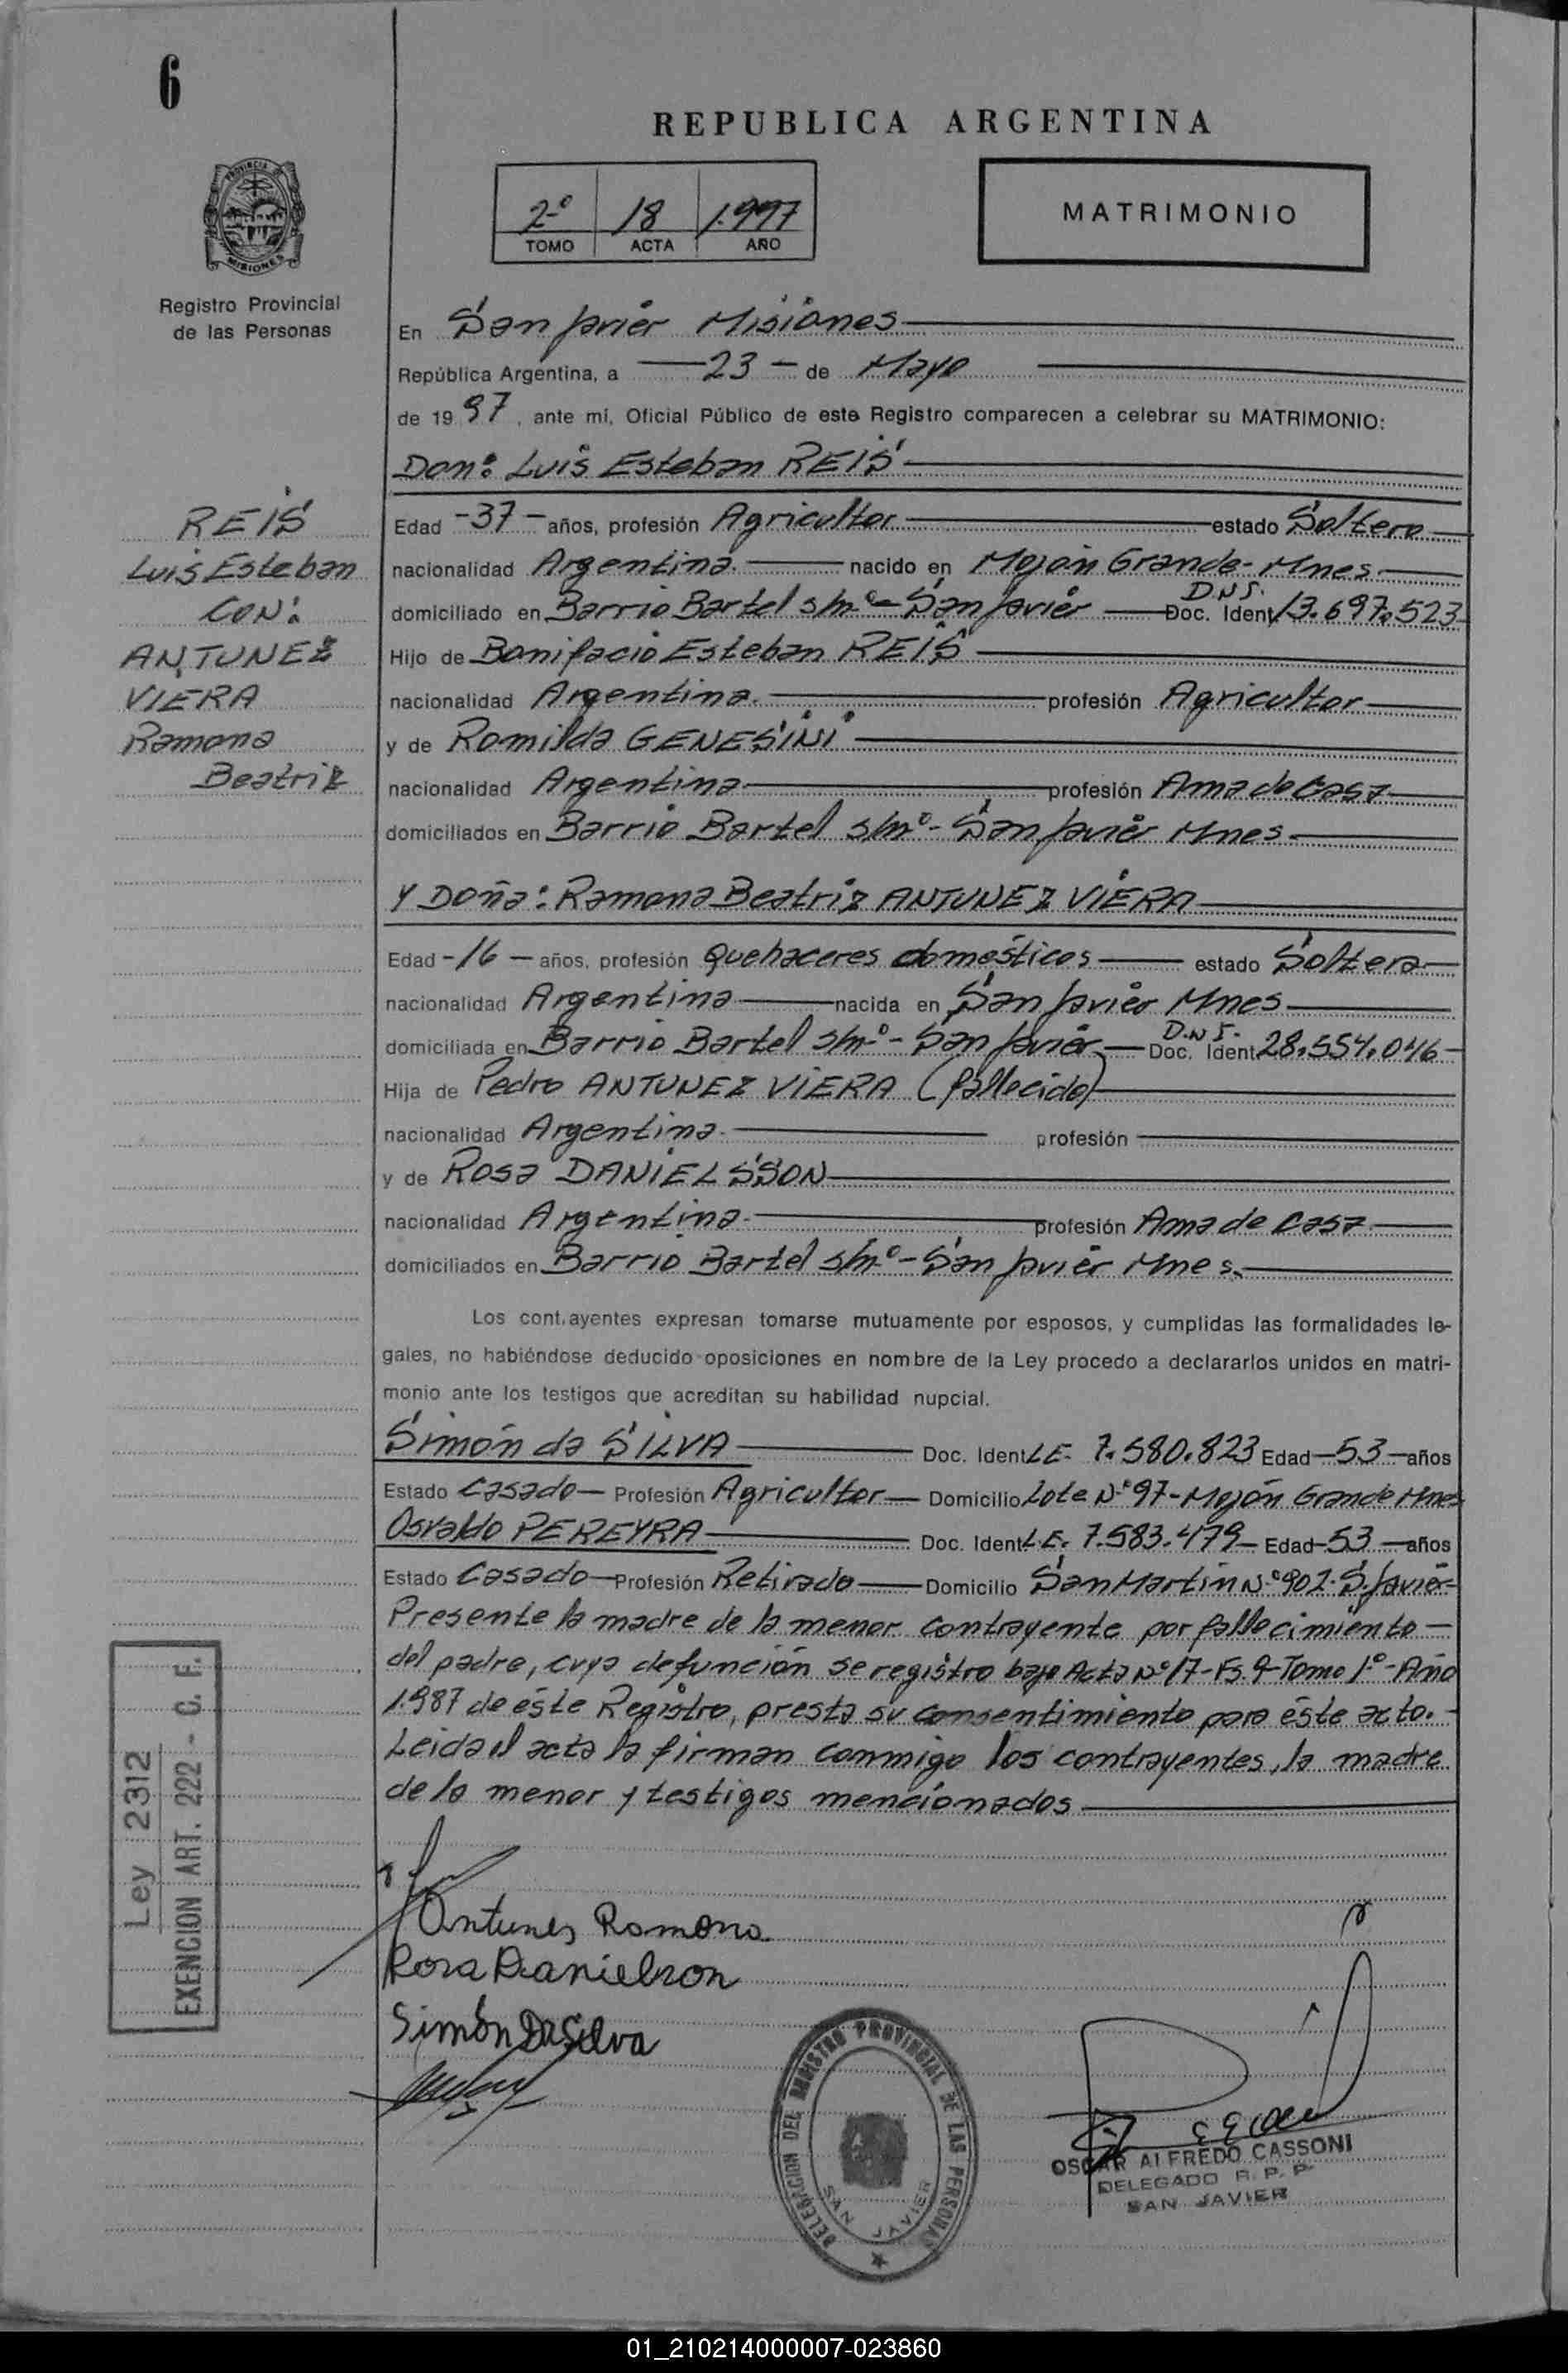 6
REPUBLICA ARGENTINA
2º 18 1.997
TOMO ACTA AÑO
MATRIMONIO
PROVINCIA DE
MISIONES
Registro Provincial
de las Personas
En San Javier Misiones
República Argentina, a 23 - de Mayo
de 19 97, ante mí, Oficial Público de este Registro comparecen a celebrar su MATRIMONIO:
Don: Luis Esteban REIS
REIS
Luis Esteban
CON:
ANTUNEZ
VIERA
Ramona
Beatriz
Edad -37- años, profesión Agricultor estado Soltero
nacionalidad Argentina. nacido en Mojón Grande- Mnes
domiciliado en Barrio Bartel s/nº - San Javier D.N.I. Doc. Ident. 13.697.523
Hijo de Bonifacio Esteban REIS
nacionalidad Argentina. profesión Agricultor
y de Romilda GENESINI
nacionalidad Argentina profesión Ama de Casa
domiciliados en Barrio Bartel s/nº - San Javier Mnes
Y Doña: Ramona Beatriz ANTUNEZ VIERA
Edad -16- años, profesión Quehaceres domésticos estado Soltera
nacionalidad Argentina nacida en San Javier Mnes
domiciliada en Barrio Bartel s/nº - San Javier D.N.I. Doc. Ident. 28.554.046
Hija de Pedro ANTUNEZ VIERA (fallecido)
nacionalidad Argentina. profesión
y de Rosa DANIELSSON
nacionalidad Argentina. profesión Ama de casa
domiciliados en Barrio Bartel s/nº - San Javier Mnes.
Los cont.ayentes expresan tomarse mutuamente por esposos, y cumplidas las formalidades le-
gales, no habiéndose deducido oposiciones en nombre de la Ley procedo a declararlos unidos en matri-
monio ante los testigos que acreditan su habilidad nupcial.
Simón da SILVA Doc. Ident. L.E. 7.580.823 Edad 53 años
Estado Casado Profesión Agricultor Domicilio Lote Nº 97 - Mojón Grande Mnes
Osvaldo PEREYRA Doc. Ident. L.E. 7.583.479 Edad 53 años
Estado Casado Profesión Retirado Domicilio San Martín Nº 902 - S. Javier
Presente la madre de la menor contrayente por fallecimiento
del padre, cuya defunción se registro bajo Acta Nº 17 - Fs. 9 - Tomo 1º - Año
1.987 de éste Registro, presta su consentimiento para éste acto.
Leida el acta la firman conmigo los contrayentes, la madre
de la menor y testigos mencionados
Ley 2312
EXENCION ART. 222 - C. F.
Antunes Ramona
Rosa Danielson
Simón Da Silva
DELEGACION DEL REGISTRO PROVINCIAL DE LAS PERSONAS
SAN JAVIER
OSCAR ALFREDO CASSONI
DELEGADO R. P. P.
SAN JAVIER
01_210214000007-023860